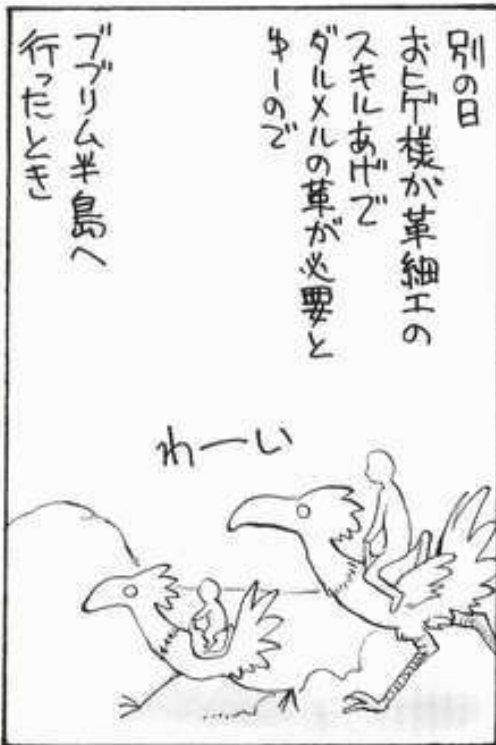 別の日
おヒゲ様が革細工の
スキルあげで
ダルメルの革が必要と
ゆーので
ブブリム半島へ
行ったとき
わーい